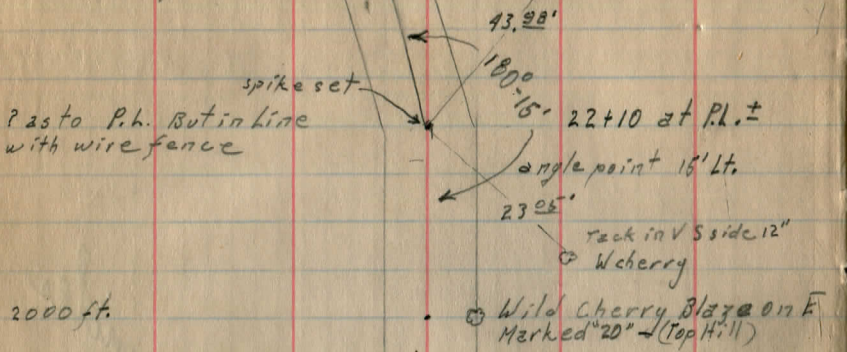 43.98'
180°-15'
spike set
? as to P.L. But in Line
with wire fence
22+10 at P.L. ±
angle point 15' Lt.
23.05'
Tack in V S side 12"
W cherry
2000 ft.
Wild Cherry Blaze on E
Marked "20" - (Top Hill)